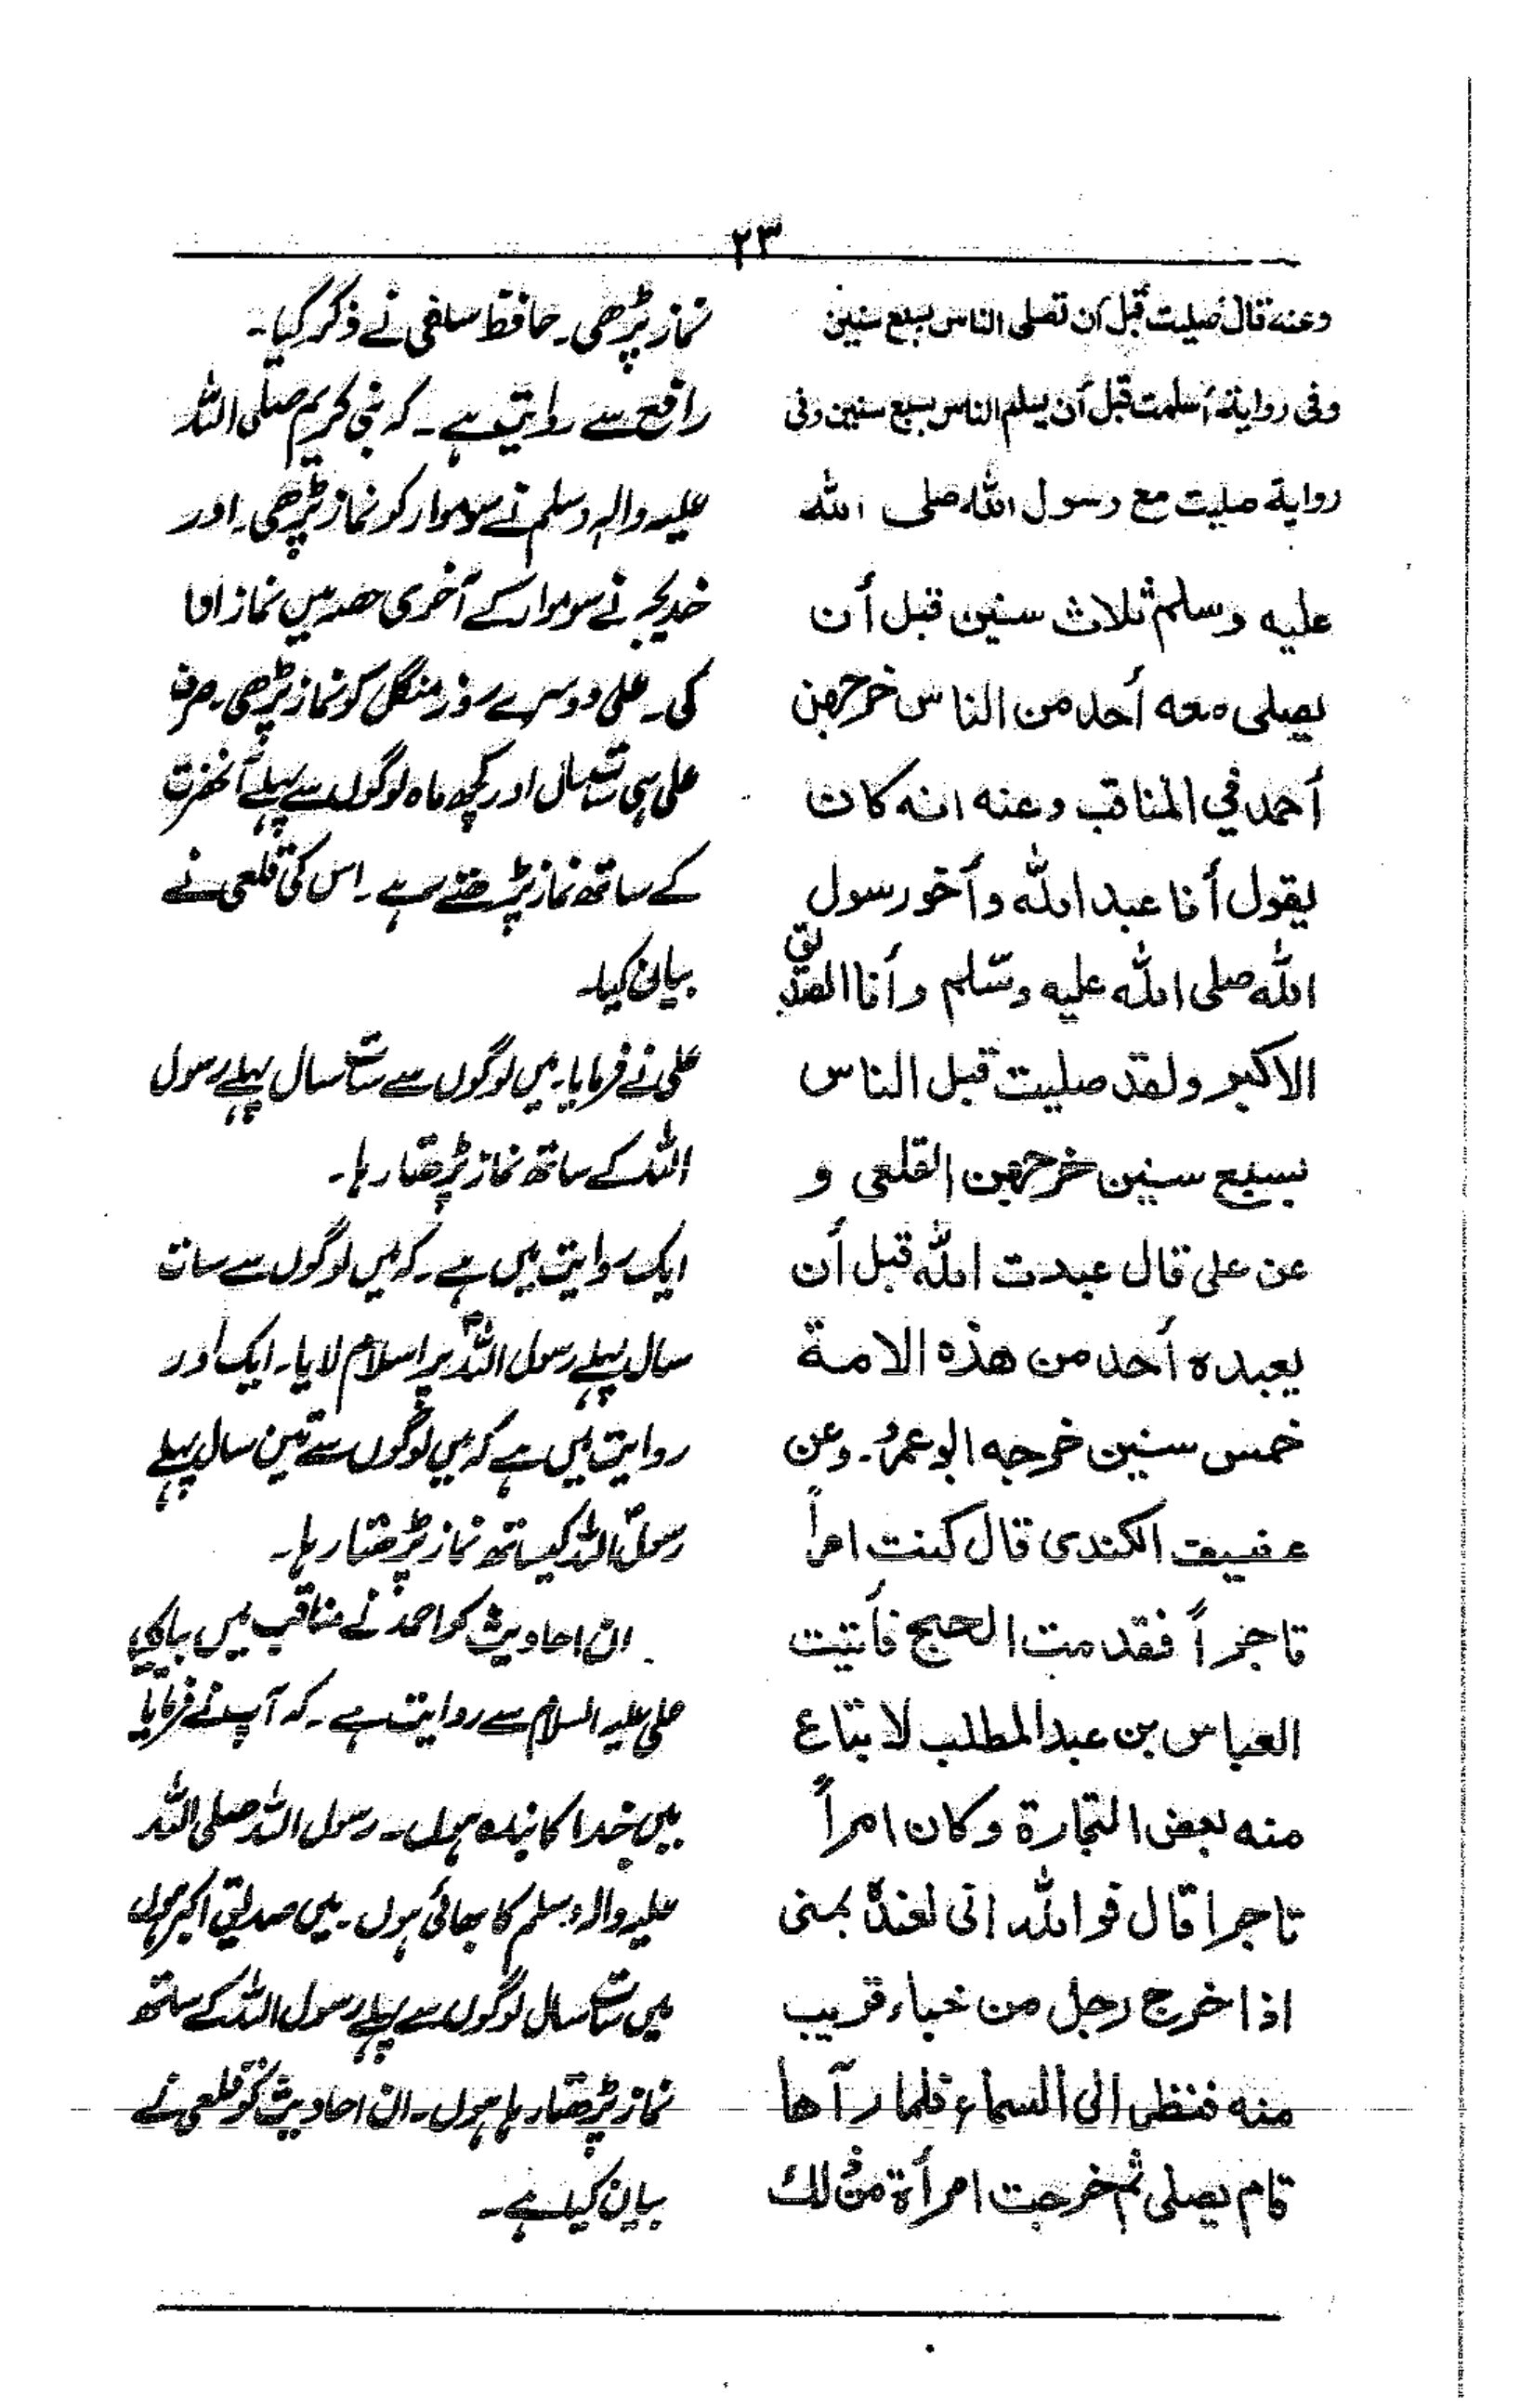 ۲۳
وعنه قال صليت قبل أن تصلى الناس بسبع سنين
وفى رواية أسلمت قبل أن يسلم الناس بسبع سنين وفى
رواية صليت مع رسول الله صلى الله
عليه وسلم ثلاث سنين قبل أن
يصلى معه أحد من الناس خرجهن
أحمد في المناقب وعنه انه كان
يقول أنا عبد الله وأخو رسول
الله صلى الله عليه وسلم وأنا الصديق
الاكبر ولقد صليت قبل الناس
بسبع سنين خرجهن القلعى و
عن على قال عبدت الله قبل أن
يعبده أحد من هذه الامة
خمس سنين خرجه ابو عمر۔ وعن
عفيف الكندى قال كنت امرأ
تاجراً فقدمت الحج فأتيت
العباس بن عبد المطلب لا بتاع
منه بعض التجارة وكان امرأ
تاجرا قال فو الله انى لعنده بمنى
اذا خرج رجل من خباء قريب
منه فنظر الى السماء فلما رآها
قام يصلى ثم خرجت امرأة من ذلك
نماز پڑھی۔ حافظ سلفی نے ذکر کیا۔
رافع سے روایت ہے۔ کہ نبی کریم صلی اللہ
علیہ والہ وسلم نے سوموار کو نماز پڑھی۔ اور
خدیجہ نے سوموار کے آخری حصہ میں نماز ادا
کی۔ علی دوسرے روز منگل کو نماز پڑھی۔ صرف
علی ہی سات سال اور کچھ ماہ لوگوں سے پہلے آنحضرت
کے ساتھ نماز پڑھتے رہے۔ اس کی قلعی نے
بیان کیا۔
علی نے فرمایا۔ میں لوگوں سے سات سال پہلے رسول
اللہ کے ساتھ نماز پڑھتا رہا۔
ایک روایت میں ہے۔ کہ میں لوگوں سے سات
سال پہلے رسول اللہؐ پر اسلام لایا۔ ایک اور
روایت میں ہے کہ میں لوگوں سے تین سال پہلے
رسول اللہ کیساتھ نماز پڑھتا رہا۔
ان احادیث کو احمد نے مناقب میں بیان کیا
علی علیہ السلام سے روایت ہے۔ کہ آپ نے فرمایا
میں خدا کا بندہ ہوں۔ رسول اللہ صلی اللہ
علیہ والہ وسلم کا بھائی ہوں۔ میں صدیق اکبر ہوں
میں سات سال لوگوں سے پہلے رسول اللہ کے ساتھ
نماز پڑھتا رہا ہوں۔ ان احادیث کو قلعی نے
بیان کیا ہے۔